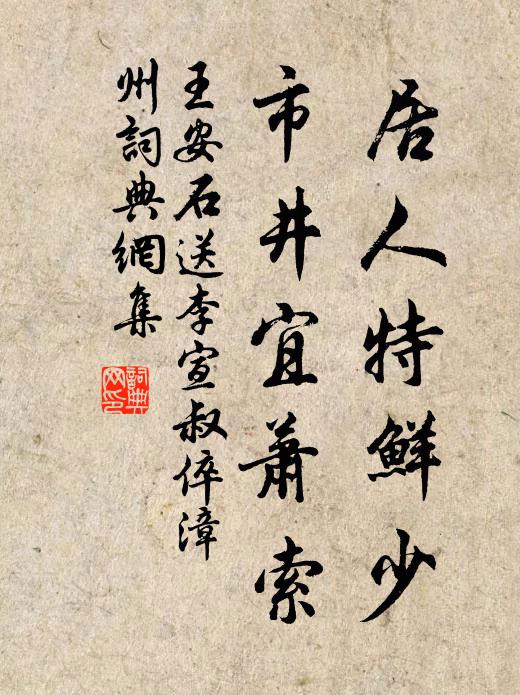 居人特鮮少
市井宜蕭索
王安石送李宣叔倅漳
州詞典網集
詞典
网印